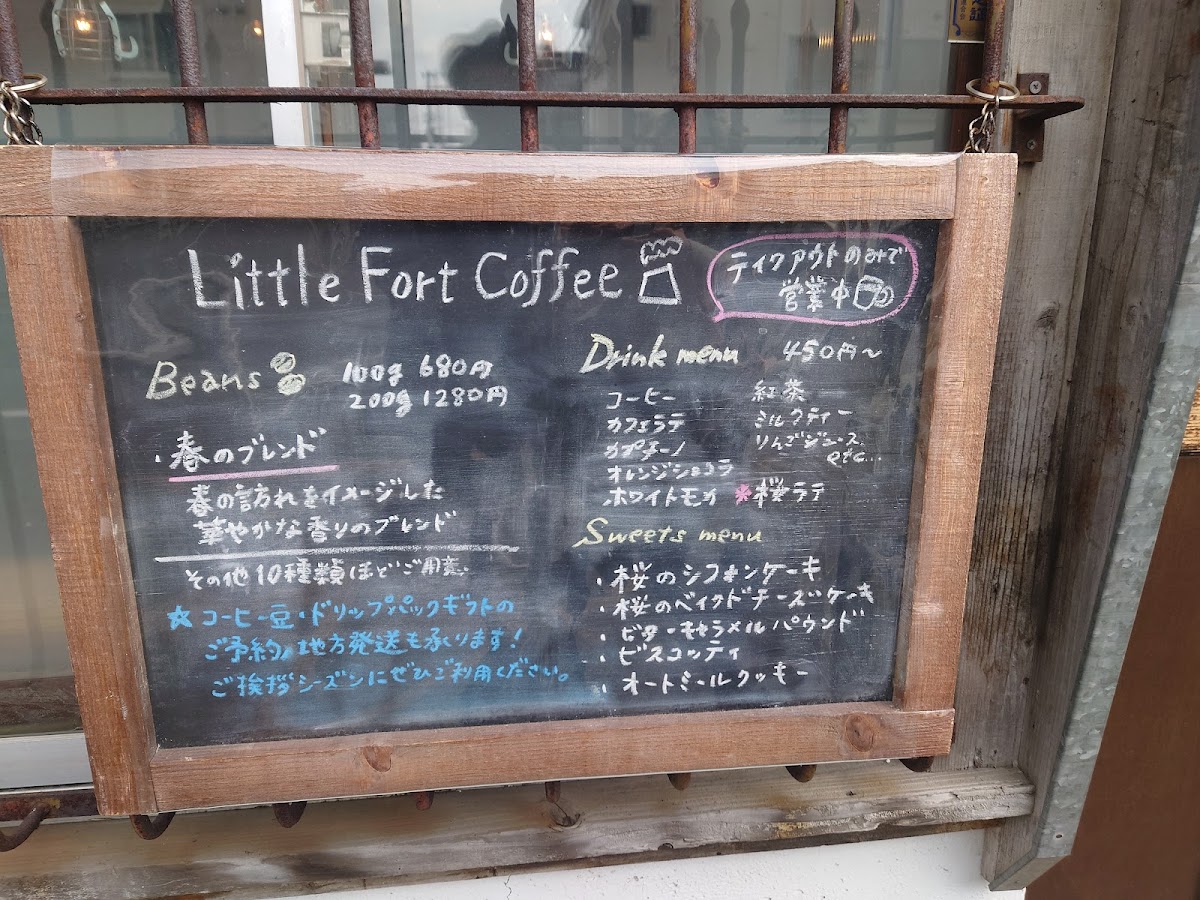 Little Fort Coffee
テイクアウトのみで
営業中
Beans
100g 680円
200g 1280円
・春のブレンド
春の訪れをイメージした
華やかな香りのブレンド
その他10種類ほどご用意.
☆コーヒー豆・ドリップパックギフトの
ご予約、地方発送も承ります!
ご挨拶シーズンにぜひご利用ください。
Drink menu 450円~
コーヒー
カフェラテ
カプチーノ
オレンジショコラ
ホワイトモカ
紅茶
ミルクティー
りんごジュース
etc...
*桜ラテ
Sweets menu
・桜のシフォンケーキ
・桜のベイクドチーズケーキ
・ビターキャラメルパウンド
・ビスコッティ
・オートミールクッキー